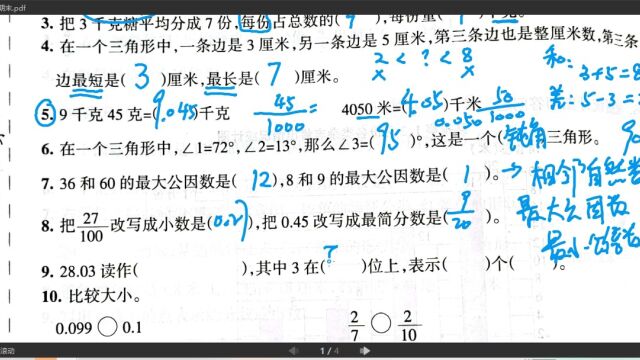 期末.pdf
3. 把 3 千克糖平均分成 7 份,每份占总数的(
4. 在一个三角形中,一条边是 3 厘米,另一条边是 5 厘米,第三条边也是整厘米数,第三条
2 < ? < 8
和:
边最短是( 3 )厘米,最长是( 7 )厘米。
3+5=8
5. 9 千克 45 克=(9.045)千克 45/1000= 4050 米=(4.05)千米 50/1000
差: 5-3=
0.050
6. 在一个三角形中,∠1=72°,∠2=13°,那么∠3=( 95 )°,这是一个(钝角三角形。 90
7. 36 和 60 的最大公因数是( 12 ),8 和 9 的最大公因数是( 1 )。→相邻自然数
8. 把 27/100 改写成小数是(0.27),把 0.45 改写成最简分数是( 9/20 )。
最大公因数
9. 28.03 读作( ),其中 3 在( ? )位上,表示( )个( )。
10. 比较大小。
0.099 ○ 0.1 2/7 ○ 2/10
滚动 1 / 4